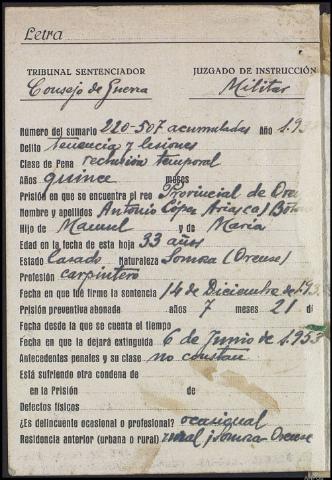 Letra
TRIBUNAL SENTENCIADOR
JUZGADO DE INSTRUCCIÓN
Consejo de Guerra
Militar
Número del sumario 220-507 acumulados Año 1.93
Delito tenencia y lesiones
Clase de Pena reclusión temporal
Años quince meses
Prisión en que se encuentra el reo Provincial de Oren
Nombre y apellidos Antonio López Arias (a)
Hijo de Manuel y de María
Edad en la fecha de esta hoja 33 años
Estado Casado Naturaleza Somoza (Orense)
Profesión carpintero
Fecha en que fué firme la sentencia 14 de Diciembre de 193
Prisión preventiva abonada años 7 meses 21 di
Fecha desde la que se cuenta el tiempo
Fecha en que la dejará extinguida 6 de Junio de 1.953
Antecedentes penales y su clase no constan
Está sufriendo otra condena de
en la Prisión de
Defectos físicos
¿Es delincuente ocasional o profesional? ocasional
Residencia anterior (urbana o rural) rural Somoza-Orense